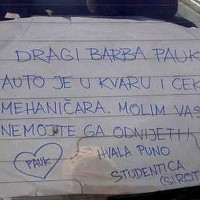 DRAGI BARBA PAUK
AUTO JE U KVARU I ČEK
MEHANIČARA. MOLIM VAS
NEMOJTE GA ODNIJETI!
PAUK HVALA PUNO
STUDENTICA
(SIROT